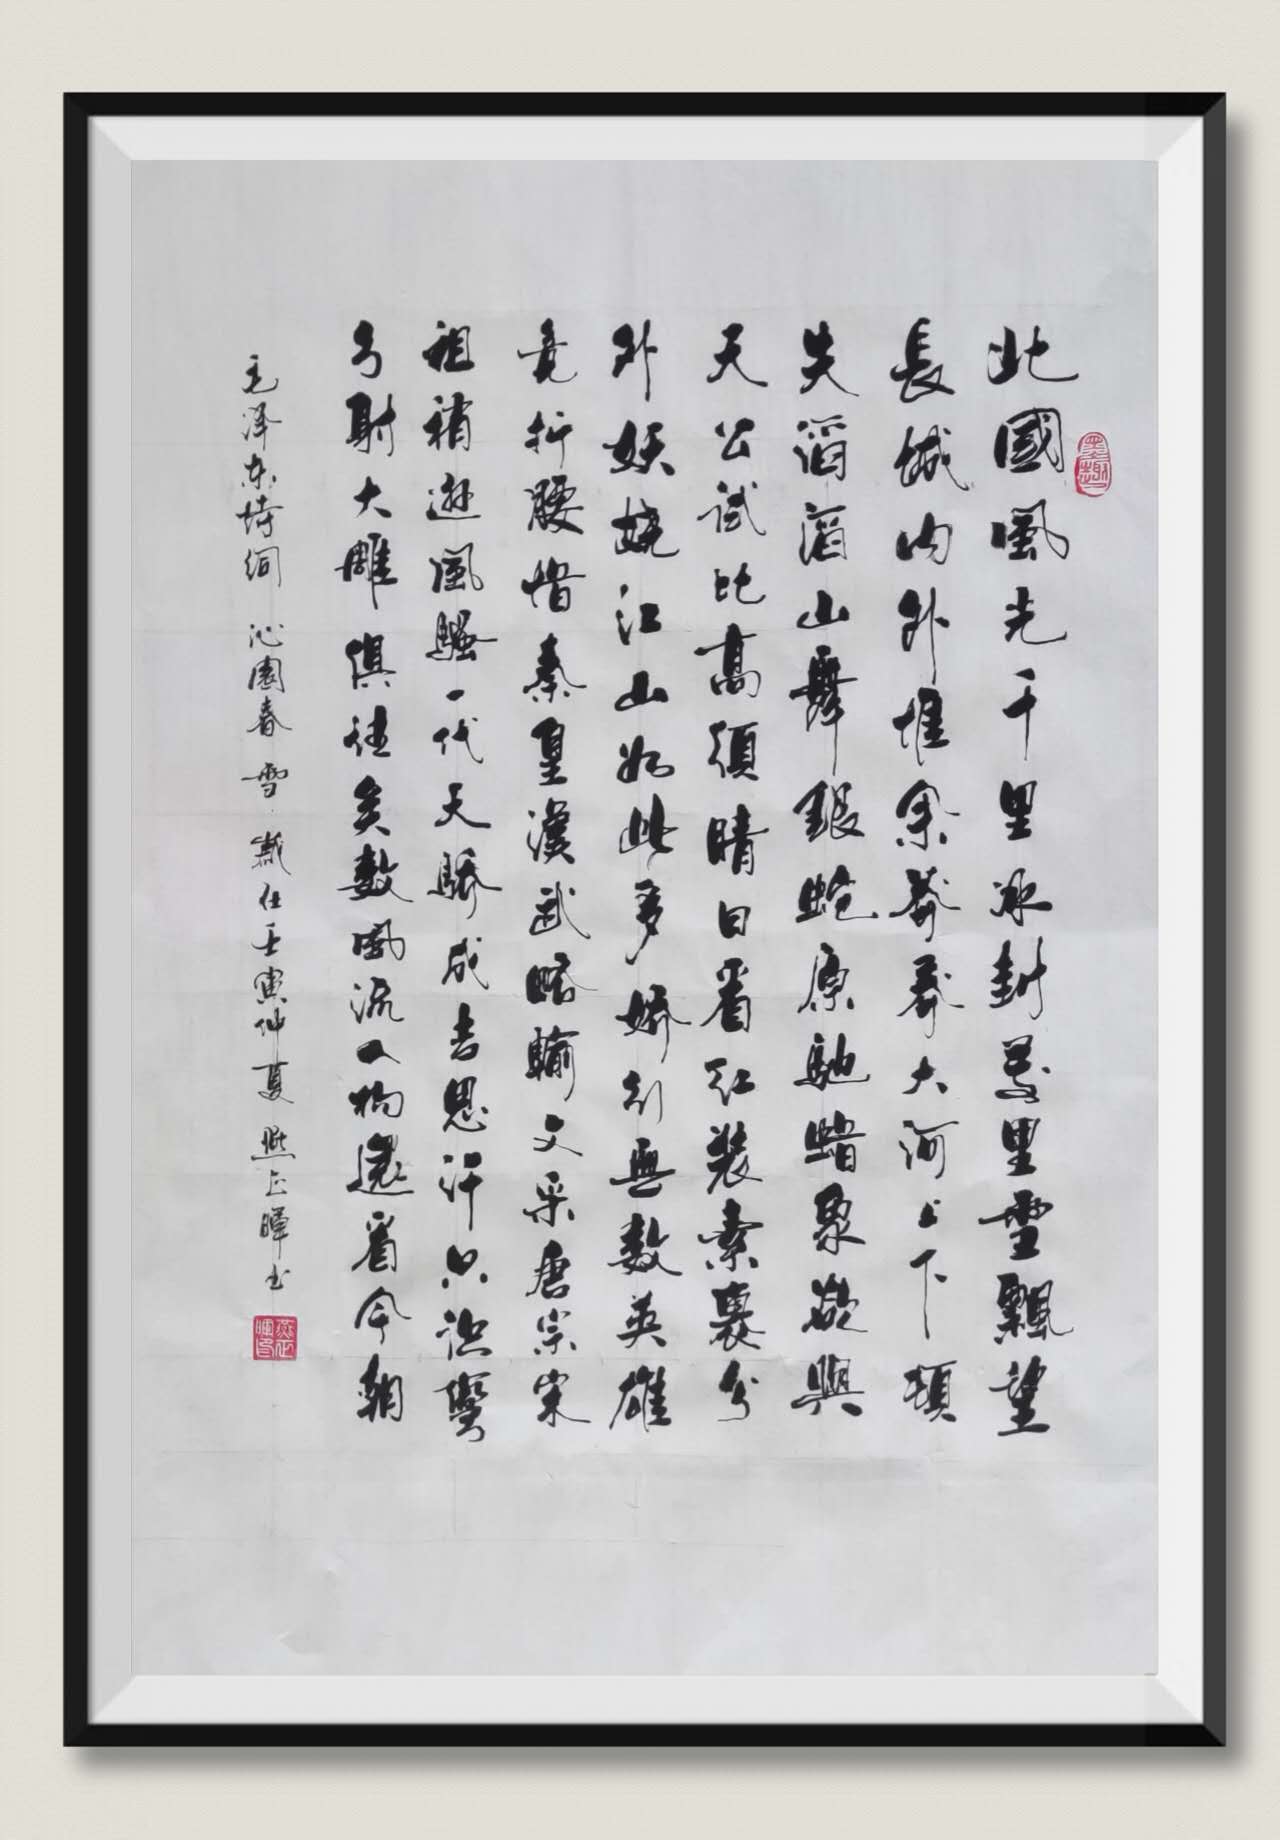 墨趣
北國風光千里冰封萬里雪飄望
長城内外惟余莽莽大河上下頓
失滔滔山舞銀蛇原馳蜡象欲與
天公試比高須晴日看红装素裹分
外妖娆江山如此多嬌引無數英雄
竞折腰惜秦皇漢武略輸文采唐宗宋
祖稍逊風騷一代天驕成吉思汗只识彎
弓射大雕俱往矣數風流人物還看今朝
毛泽东诗词 沁園春 雪 歲在壬寅仲夏 燕正暉书
燕正暉印